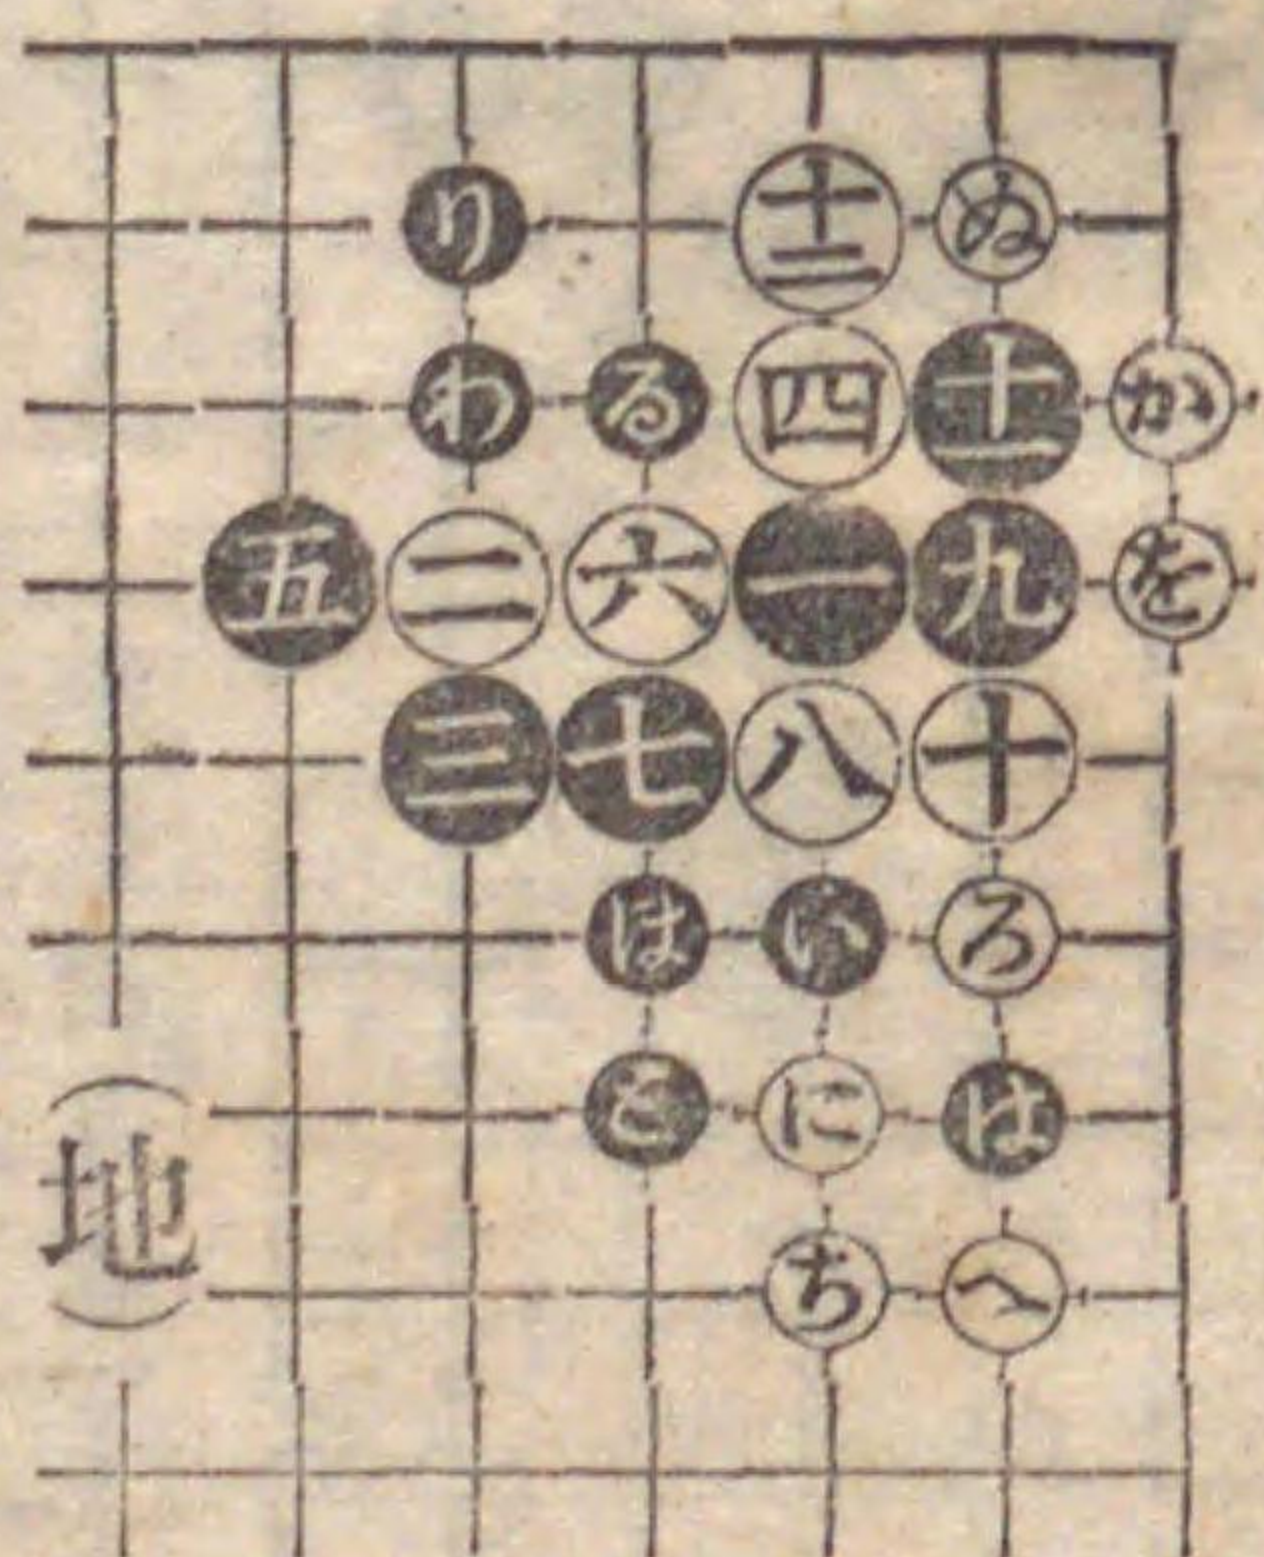 り 十二 ぬ
わ る 四 十一 か
五 二 六 一 九 を
三 七 八 十
は い ろ
と に は
ち へ
(地)